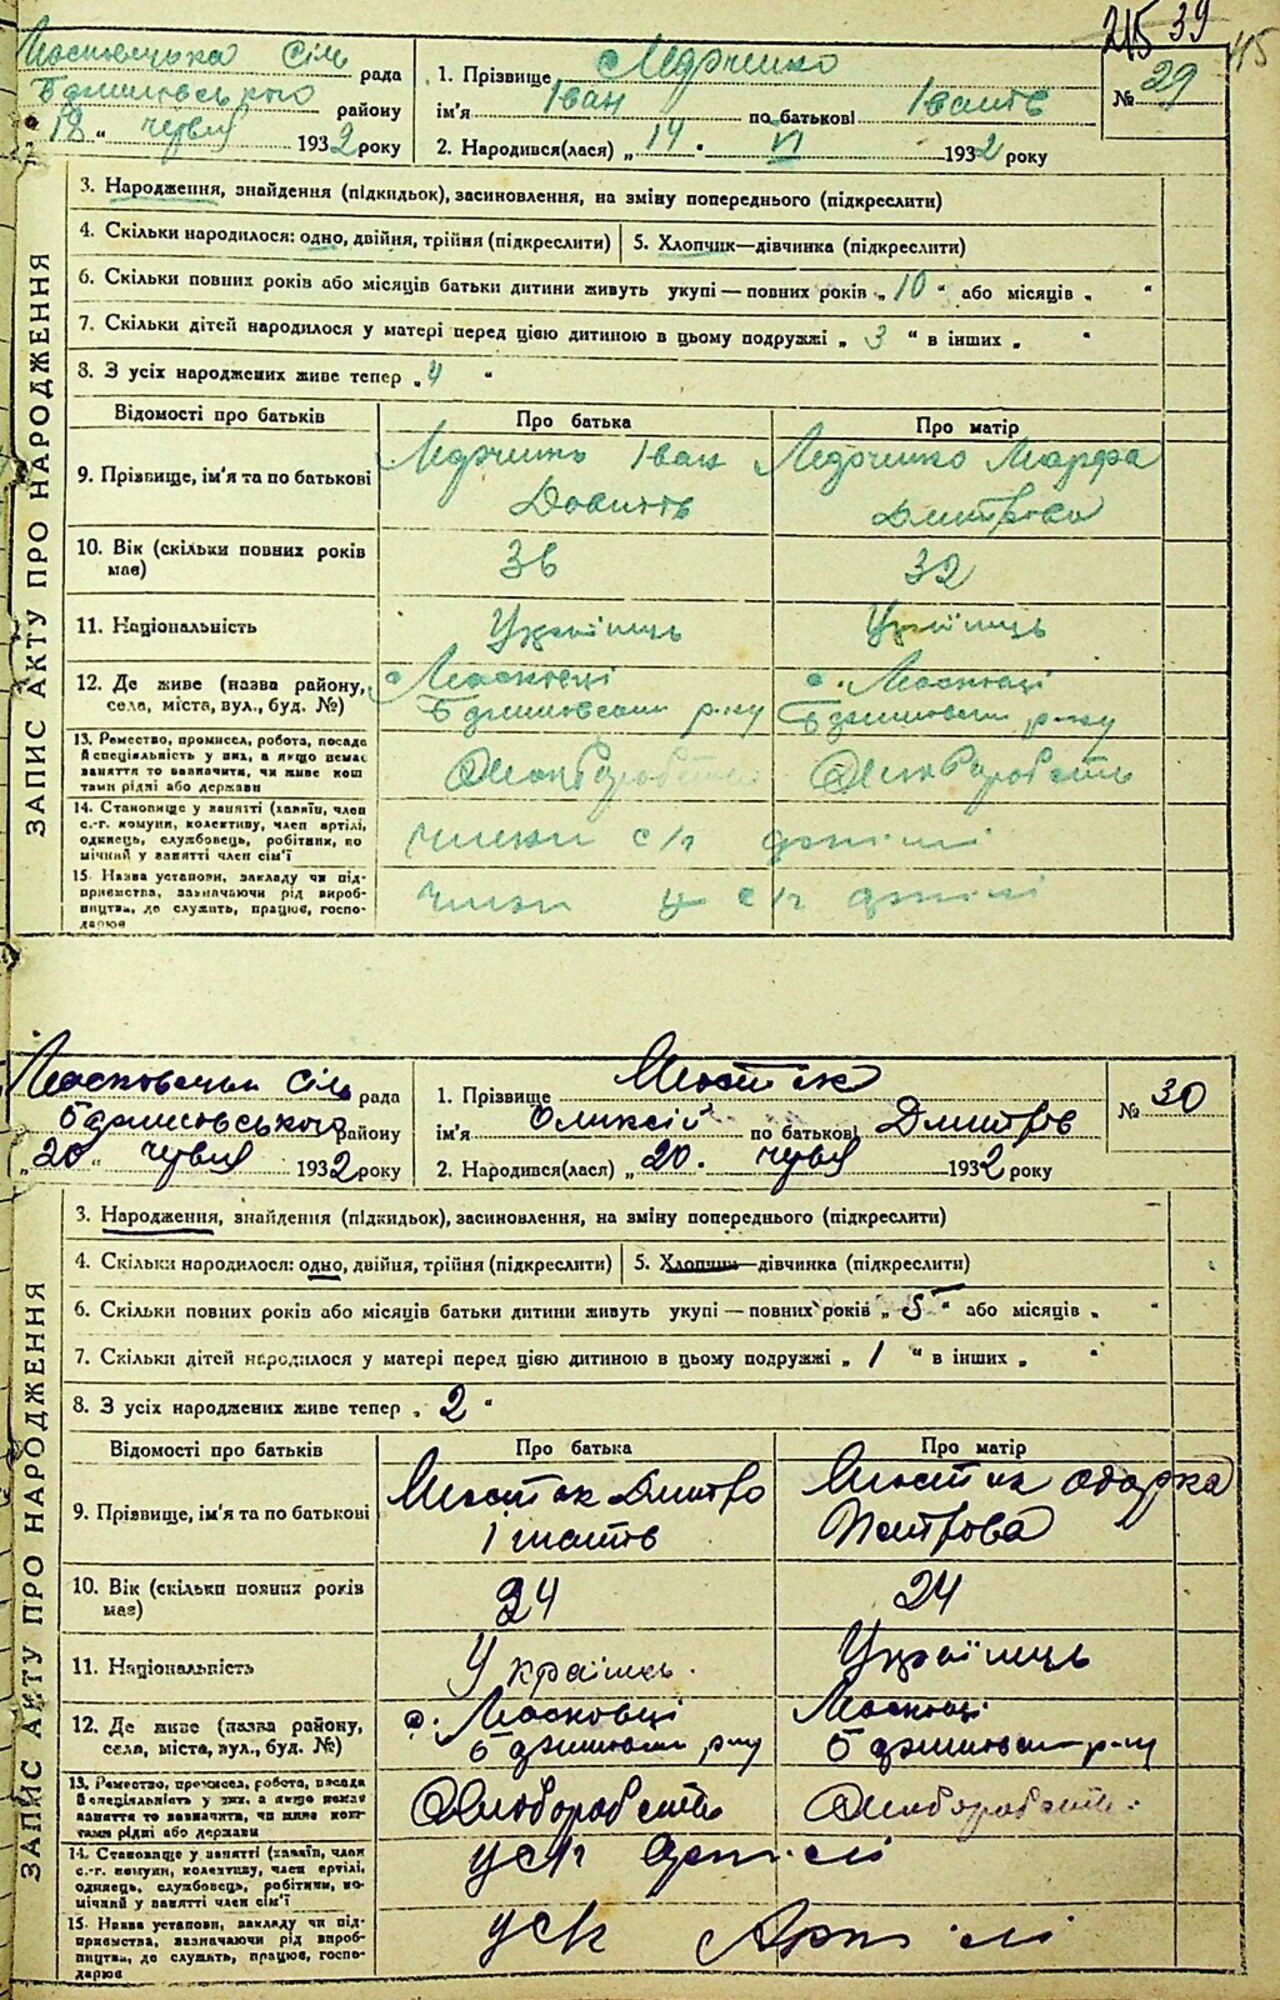 215 39
Московецька Сіль рада
Бзишовського району
„18“ червня 1932 року
1. Прізвище
ім'я Іван по батькові Іванів
2. Народився(лася) „14“ VI 1932 року
№ 29
ЗАПИС АКТУ ПРО НАРОДЖЕННЯ
3. Народження, знайдення (підкидьок), засиновлення, на зміну попереднього (підкреслити)
4. Скільки народилося: одно, двійня, трійня (підкреслити) 5. Хлопчик—дівчинка (підкреслити)
6. Скільки повних років або місяців батьки дитини живуть укупі — повних років „10“ або місяців „ “
7. Скільки дітей народилося у матері перед цією дитиною в цьому подружжі „3“ в інших „ “
8. З усіх народжених живе тепер „4“
Відомості про батьків Про батька Про матір
9. Прізвище, ім'я та по батькові Іван Марфа
Давидів Дмитрова
10. Вік (скільки повних років має) 36 32
11. Національність Українець Українець
12. Де живе (назва району, села, міста, вул., буд. №) с. Московці с. Московці
р-ну р-ну
13. Ремество, промисел, робота, посада й спеціяльність у них, а якщо немає заняття то зазначити, чи живе коштами рідні або держави Хліборобств Хліборобств
14. Становище у занятті (хазяїн, член с.-г. комуни, колективу, член артілі, одинець, службовець, робітник, помічний у занятті член сім'ї члени с/г артілі
15. Назва установи, закладу чи підприємства, зазначаючи рід виробництва, де служить, працює, господарює члени у с/г артілі
Московецька Сіль рада
району
„20“ червня 1932 року
1. Прізвище Мостяк
ім'я Оликсій по батькові Дмитрів
2. Народився(лася) „20“ червня 1932 року
№ 30
ЗАПИС АКТУ ПРО НАРОДЖЕННЯ
3. Народження, знайдення (підкидьок), засиновлення, на зміну попереднього (підкреслити)
4. Скільки народилося: одно, двійня, трійня (підкреслити) 5. Хлопчик—дівчинка (підкреслити)
6. Скільки повних років або місяців батьки дитини живуть укупі — повних років „5“ або місяців „ “
7. Скільки дітей народилося у матері перед цією дитиною в цьому подружжі „1“ в інших „ “
8. З усіх народжених живе тепер „2“
Відомості про батьків Про батька Про матір
9. Прізвище, ім'я та по батькові Мостяк Дмитро Мостяк Одарка
Гнатів Петрова
10. Вік (скільки повних років має) 24 24
11. Національність Українець. Українець
12. Де живе (назва району, села, міста, вул., буд. №) с. Московці Московці
р-ну р-ну
13. Ремество, промисел, робота, посада й спеціяльність у них, а якщо немає заняття то зазначити, чи живе коштами рідні або держави Хліборобств Хліборобств.
14. Становище у занятті (хазяїн, член с.-г. комуни, колективу, член артілі, одинець, службовець, робітник, помічний у занятті член сім'ї у с/г артілі
15. Назва установи, закладу чи підприємства, зазначаючи рід виробництва, де служить, працює, господарює у с/г Артілі